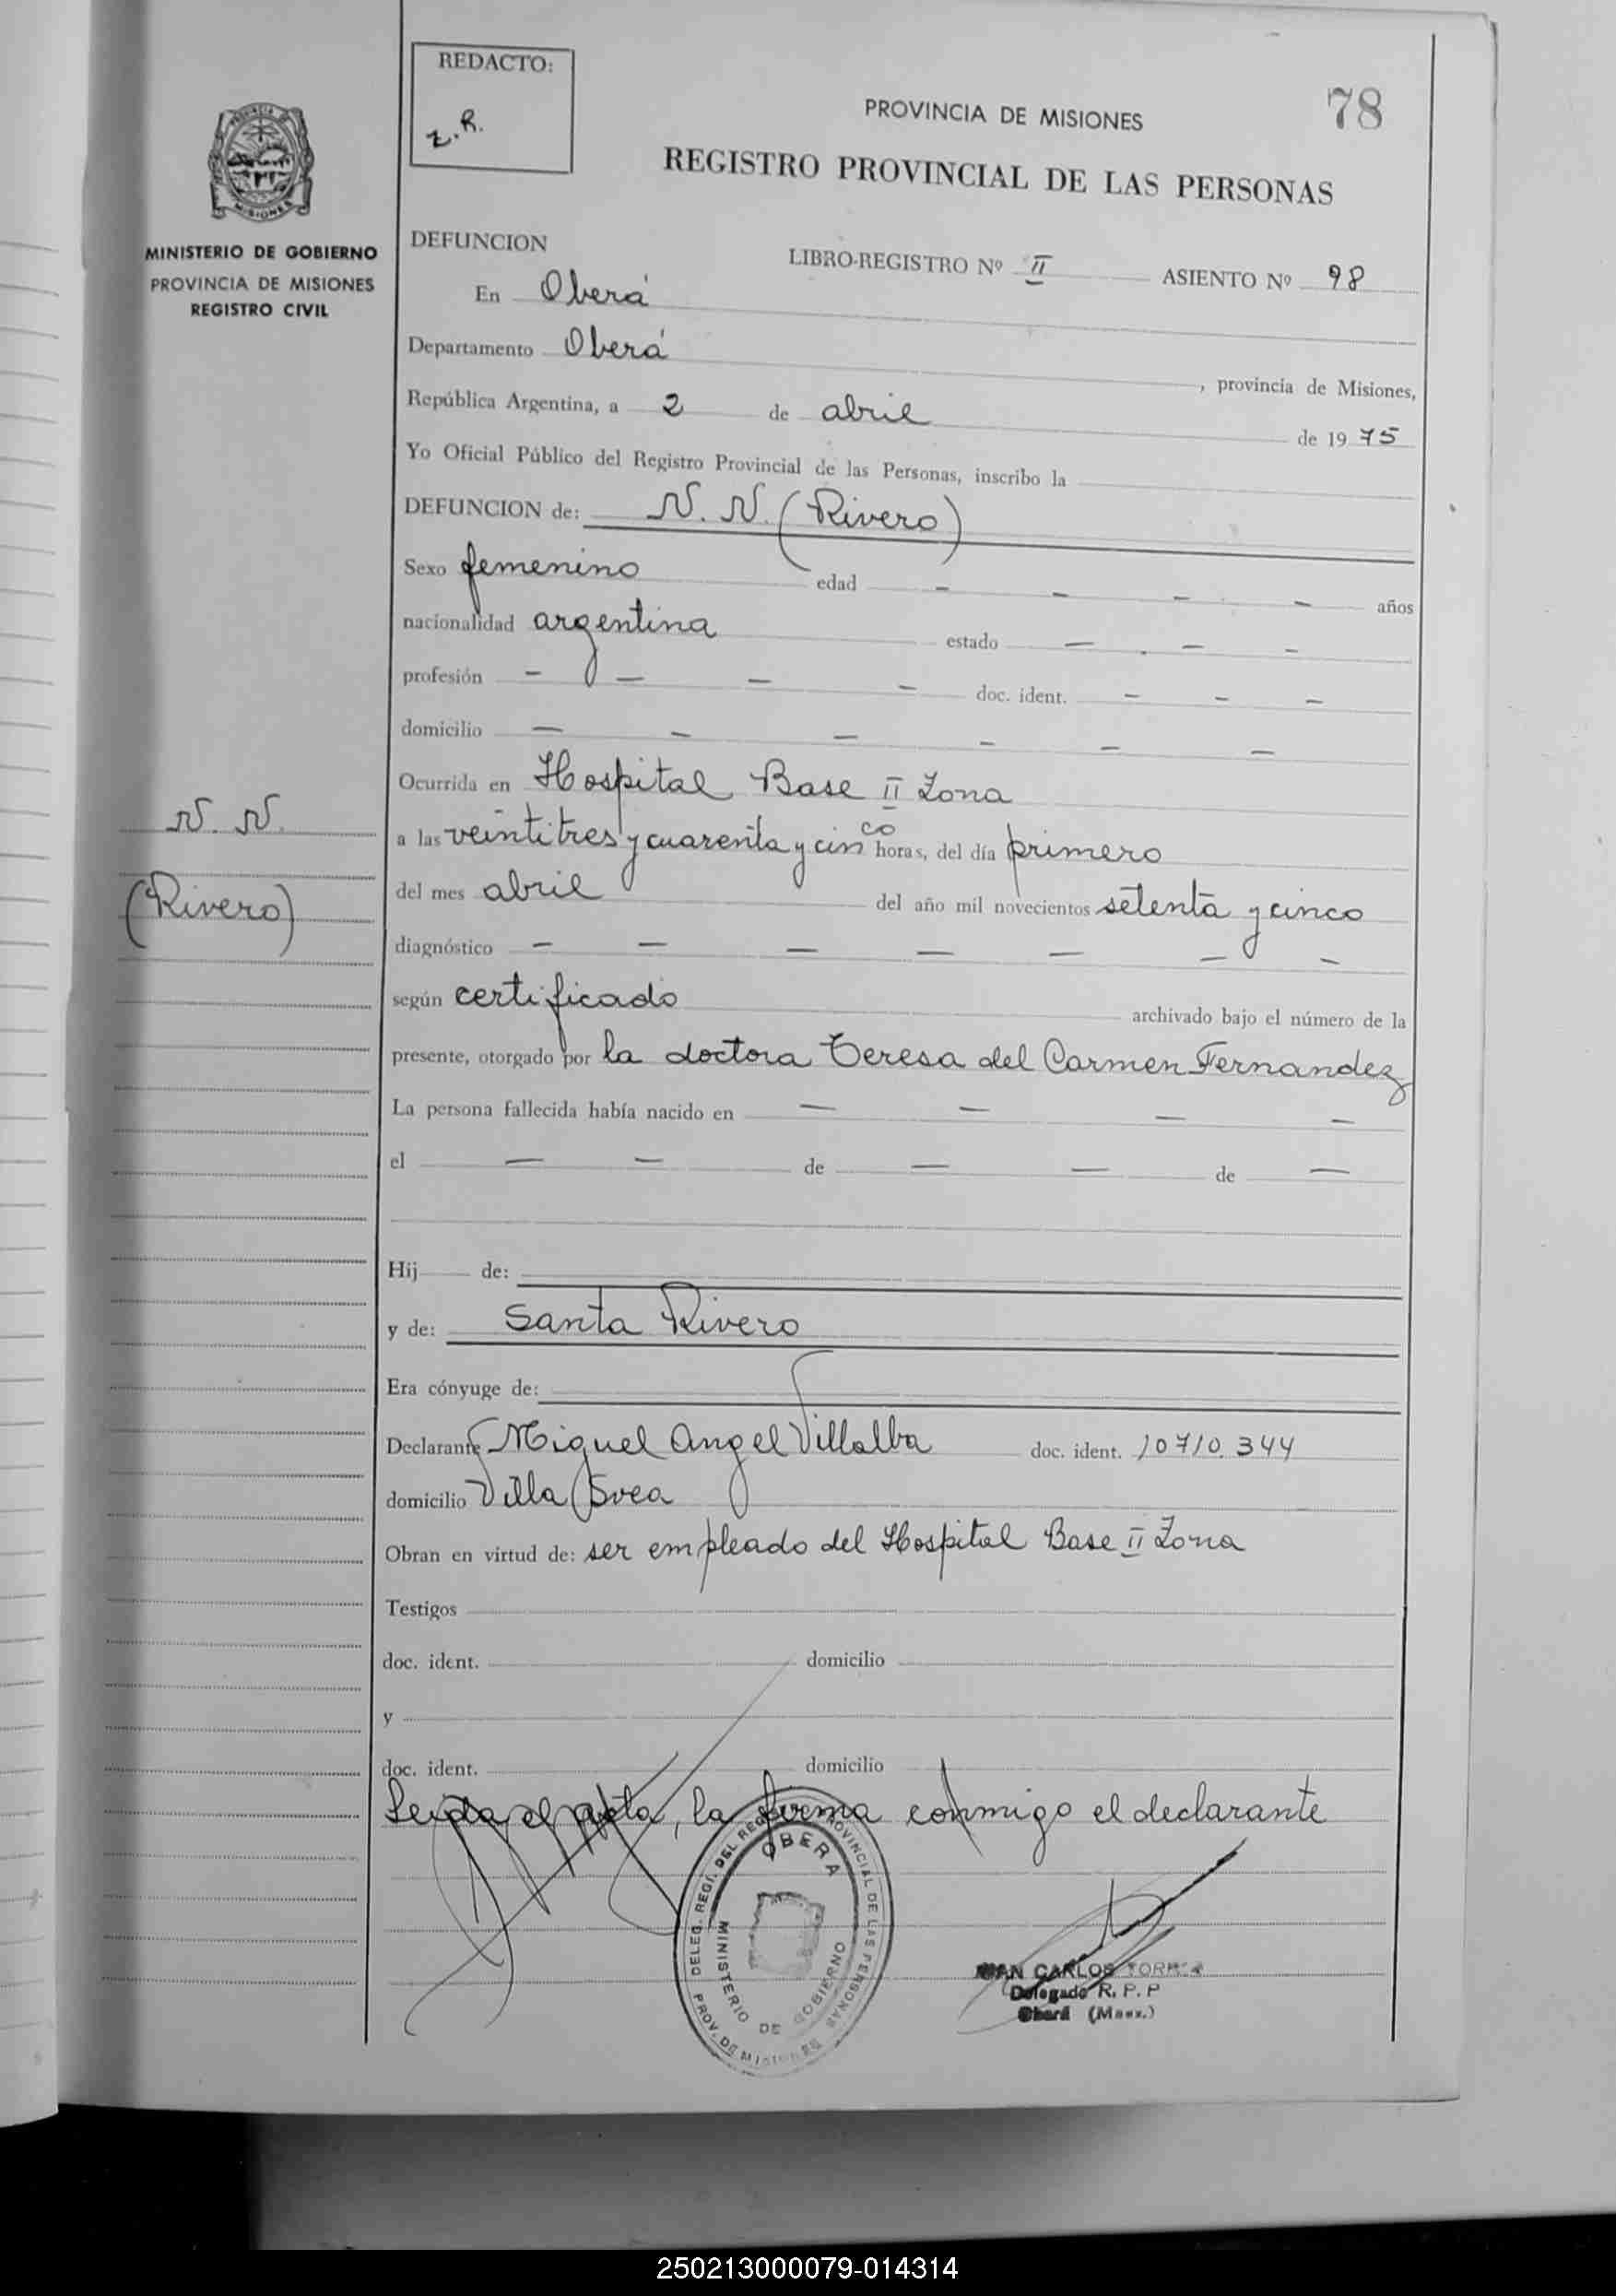 REDACTO:
Z.R.
78
PROVINCIA DE MISIONES
REGISTRO PROVINCIAL DE LAS PERSONAS
MISIONES
MINISTERIO DE GOBIERNO
PROVINCIA DE MISIONES
REGISTRO CIVIL
DEFUNCION
LIBRO-REGISTRO Nº II ASIENTO Nº 98
En Oberá
Departamento Oberá , provincia de Misiones,
República Argentina, a 2 de abril de 1975
Yo Oficial Público del Registro Provincial de las Personas, inscribo la
DEFUNCION de: N. N. (Rivero)
Sexo femenino edad - - - - años
nacionalidad argentina estado - - -
profesión - - - - doc. ident. - - -
domicilio - - - - - -
Ocurrida en Hospital Base II Zona
N. N.
(Rivero)
a las veintitres y cuarenta y cinco horas, del día primero
del mes abril del año mil novecientos setenta y cinco
diagnóstico - - - - - - -
según certificado archivado bajo el número de la
presente, otorgado por la doctora Teresa del Carmen Fernandez
La persona fallecida había nacido en - - - -
el - - de - - de -
Hij de:
y de: Santa Rivero
Era cónyuge de:
Declarante Miguel Angel Villalba doc. ident. 10710.344
domicilio Villa Svea
Obran en virtud de: ser empleado del Hospital Base II Zona
Testigos
doc. ident. domicilio
y
doc. ident. domicilio
Leida el acta, la firma conmigo el declarante
DELEG. REGI. DEL REG. PROVINCIAL DE LAS PERSONAS
OBERA
MINISTERIO DE GOBIERNO
PROV. DE MISIONES
JUAN CARLOS TORRES
Delegado R. P. P
Oberá (Mnes.)
250213000079-014314